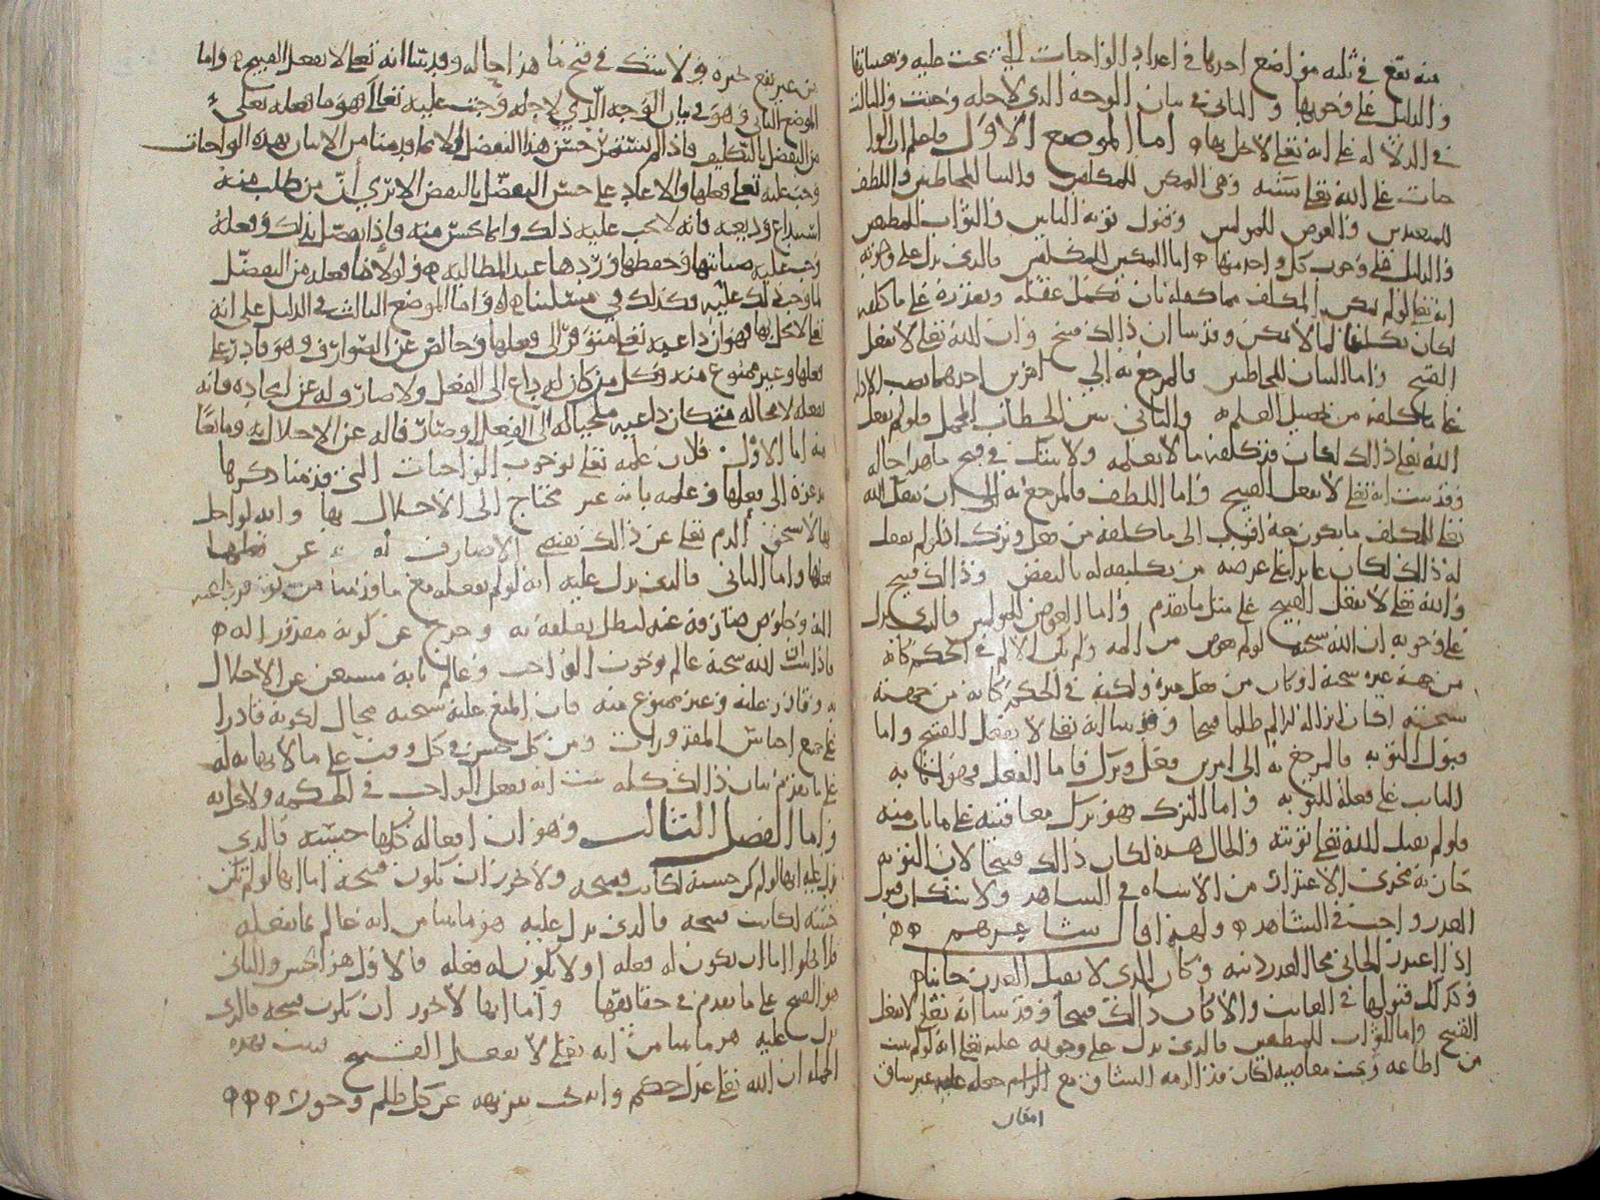 منه تقع في ثلثة مواضع احدها في اعداد الواجبات التي تحت عليه وهيئاتها
والدليل على وجوبها و الثاني في بيان الوجه الذي لاجله وجبت والثالث
في الدلالة على انه تعلى لا يخل بها ه اما الموضع الاول فاعلم ان الوا
جبات على الله تعلى ستة وهي التمكين للمكلفين والبيان للمخاطبين واللطف
للمتعبدين والعوض للمولمين وقبول توبة التايبين والثواب للمطيعين
والدليل على وجوب كل واحد منها ه اما التمكين للمكلفين فالذي يدل على وجوبه
انه تعلى لو لم يمكن المكلف مما كلفه بان يكمل عقله ويقدره على ما كلفه
لكان تكليفا لما لا يمكن وقد بينا ان ذالك قبيح وان الله تعلى لا يفعل
القبيح واما البيان للمخاطبين فالمرجع به الى امرين احدهما نصب الادلة
على ما كلفه من تحصيل العلم ه والثاني بيين الخطاب المجمل فلو لم يفعل
الله تعلى ذالك لكان قد كلفه ما لا يعلمه ولا يشك في قبح ما هذا حاله
وقد ثبت انه تعلى لا يفعل القبيح واما اللطف فالمرجع به الى ان يفعل الله
تعلى للمكلف ما يكون معه اقرب الى ما كلفه من فعل وترك اذ لو لم يفعل
له ذالك لكان عايدا على غرضه من تكليفه له بالنقض وذالك قبيح
والله تعلى لا يفعل القبيح على مثل ما تقدم واما العوض للمولمين فالذي يدل
على وجوبه ان الله سبحنه لو لم يعوض من المه ولم يكن الالم في الحكم كانه
من جهة غيره سبحنه او كان من فعل غيره ولكنه في الحكم كانه من جهته
سبحنه لكان انزاله لذالم ظلما قبيحا وقد بينا انه تعلى لا يفعل القبيح واما
قبول التوبه فالمرجع به الى امرين فعل وترك فاما الفعل فهو اثابة
التايب على فعله للتوبه واما الترك فهو ترك معاقبته على ما تاب منه
فلو لم يقبل الله تعلى توبته والحال هذه لكان ذالك قبيحا لان التوبه
جارية مجرى الاعتذار من الاساه في الشاهد ولا يشك ان قبول
العذر واجب في الشاهد ه ولهذا قال شاعرهم ه ه
اذا اعتذر الجاني محا العذر ذنبه وكان الذي لا يقبل العذر جانيا ه
وكذلك قبولها في الغايب والا كان ذالك قبيحا وقد بينا انه تعلى لا يفعل
القبيح واما الثواب للمطيعين فالذي يدل على وجوبه عليه تعلى انه لو لم يثب
من اطاعه وتجنب معاصيه لكان قد الزمه الشاق مع الزام جعله عليه غير شاق
من غير نفع لغيره ولا يشك في قبح ما هذا حاله وقد بينا انه تعلى لا يفعل القبيح ه واما
الموضع الثاني وهو في بيان الوجه الذي لاجله وجبت عليه تعالى فهو ما فعله تعلى
من التفضل بالتكليف فاذا لم يستمر حسن هذا التفضل الا بما قدمنا من الاتيان بهذه الواجبات
وجب عليه تعلى فعلها والا عاد على حسن التفضل بالنقض الا ترى ان من طلب منه
استيداع وديعه فانه لا يجب عليه ذلك وانما يحسن منه فاذا تفضل بذلك وفعله
وجب عليه صيانتها وحفظها وردها عند المطالبه ه ولولا ما فعله من التفضل
لما وجب ذلك عليه فكذلك في مسئلتنا ه واما الموضع الثالث في الدليل على انه
تعلى لا يخل بها فهو ان داعيه تعلى متوفر الى فعلها وخالص عن الصوارف وهو قادر على
فعلها وغير ممنوع منه وكل من كان له داع الى الفعل ولا صارف له عن ايجاده فانه
يفعله لا محاله متى كان داعيه ملجيا له الى الفعل وصارفا له عن الاخلال به ومانعا
منه اما الاول فلان علمه تعلى بوجوب الواجبات التي قدمنا ذكرها
يدعوه الى فعلها وعلمه بانه غير محتاج الى الاخلال بها وانه لو اخل
بها لاستحق الذم تعلى عن ذالك يقتضي الا صارف له عن فعلها
واما الثاني فالذي يدل عليه انه لو لم يفعله مع ما قدمنا من توفر داعيه
اليه وخلوص صارفه عنه لبطل تعلقه به وخرج عن كونه مقدورا له ه
فاذا ثبت ان الله سبحنه عالم بوجوب الواجب وعالم بانه مستغن عن الاخلال
به وقادر عليه وغير ممنوع منه فان المنع عليه سبحنه محال لكونه قادرا
على جميع اجناس المقدورات ومن كل جنس في كل وقت على ما لا نهاية له
على ما تقدم بيان ذالك كله ثبت انه يفعل الواجب في الحكمه ولا يخل به
واما الفصل الثالث وهو ان افعاله كلها حسنة فالذي
يدل عليه انها لو لم تكن حسنة لكانت قبيحه ولا يجوز ان تكون قبيحة اما انها لو لم تكن
حسنة لكانت قبيحه فالذي يدل عليه هو ما بينا من انه عالم بما يفعله
فلا يخلوا اما ان يكون له فعله او لا يكون له فعله فالاول هو الحسن والثاني
هو القبيح على ما تقدم في حقايقها واما انها لا يجوز ان تكون قبيحه فالذي
يدل عليه هو ما بينا من انه تعلى لا يفعل القبيح فثبت بهذه
الجمله ان الله تعلى عدل حكيم وانه يجب تنزيهه عن كل ظلم وجور ه ه ه